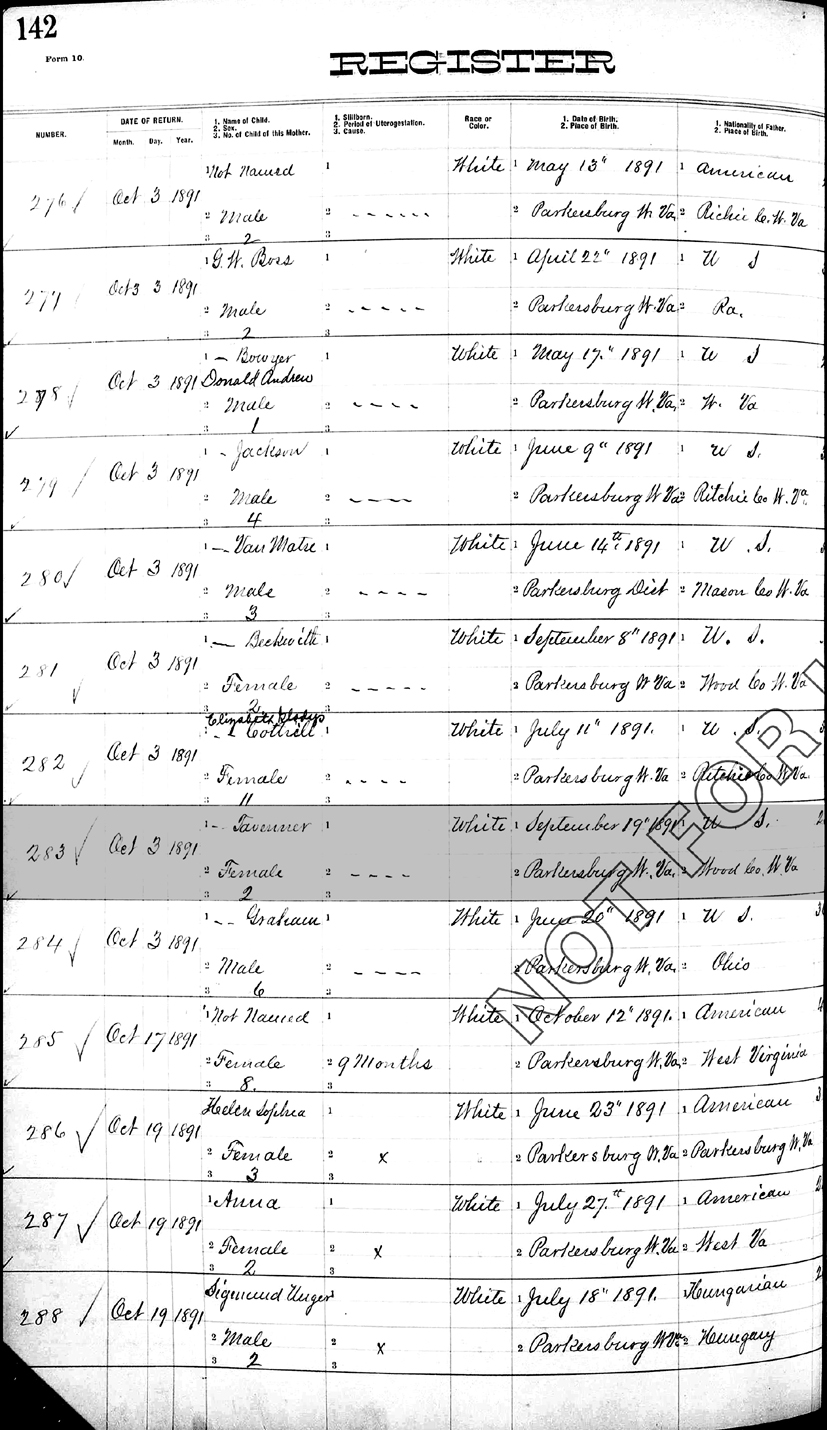 142
Form 10.
REGISTER
NUMBER.
DATE OF RETURN.
Month. Day. Year.
1. Name of Child.
2. Sex.
3. No. of Child of this Mother.
1. Stillborn.
2. Period of Uterogestation.
3. Cause.
Race or
Color.
1. Date of Birth.
2. Place of Birth.
1. Nationality of Father.
2. Place of Birth.
276 Oct 3 1891 1 Not Named 1 White 1 May 13" 1891 1 American
2 Male 2 - - - - - - 2 Parkersburg W. Va. 2 Richie Co. W. Va
3 2 3
277 Oct 3 3 1891 1 G. W. Boss 1 White 1 April 22" 1891 1 U S
2 Male 2 - - - - - 2 Parkersburg W. Va. 2
3 2 3
278 Oct 3 1891 1 — Bowyer 1 White 1 May 17." 1891 1 U S
Donald Andrew
2 Male 2 - - - - 2 Parkersburg W. Va. 2 W. Va
1
279 Oct 3 1891 1 - Jackson 1 White 1 June 9" 1891 1 U S.
2 Male 2 - - - - 2 Parkersburg W Va 2 Ritchie Co W. Va.
4
280 Oct 3 1891 1 — Van Matre 1 White 1 June 14th 1891 1 U . S.
2 Male 2 - - - - 2 Parkersburg Dist 2 Mason Co W. Va
3 3 3
281 Oct 3 1891 1 — Beckwith 1 White 1 September 8" 1891 1 U. S.
2 Female 2 - - - - - 2 Parkersburg W Va 2 Wood Co W. Va
3 2 3
Elizabeth Gladys
282 Oct 3 1891 1 - - Cottrill 1 White 1 July 11" 1891. 1 U . S.
2 Female 2 - - - - 2 Parkersburg W. Va 2 Ritchie Co W Va
3 11 3
283 Oct 3 1891 1 -- Tavenner 1 White 1 September 19" 1891 1 U S.
2 Female 2 - - - - 2 Parkersburg W. Va. 2 Wood Co. W. Va
3 2 3
284 Oct 3 1891 1 -- Graham 1 White 1 June 20" 1891 1 U S.
2 Male 2 - - - - 2 Parkersburg W. Va. 2 Ohio
3 6 3
285 Oct 17 1891 1 Not Named 1 White 1 October 12" 1891. 1 American
2 Female 2 9 Months 2 Parkersburg W. Va. 2 West Virginia
3 8. 3
286 Oct 19 1891 Helen Sophia 1 White 1 June 23" 1891 1 American
2 Female 2 x 2 Parkersburg W. Va 2 Parkersburg W. Va
3 3 3
287 Oct 19 1891 1 Anna 1 White 1 July 27.th 1891 1 American
2 Female 2 x 2 Parkersburg W. Va 2 West Va
3 2 3
288 Oct 19 1891 Sigmund Unger 1 White 1 July 18" 1891. 1 Hungarian
2 Male 2 x 2 Parkersburg W Va 2 Hungary
3 2 3
NOT FOR